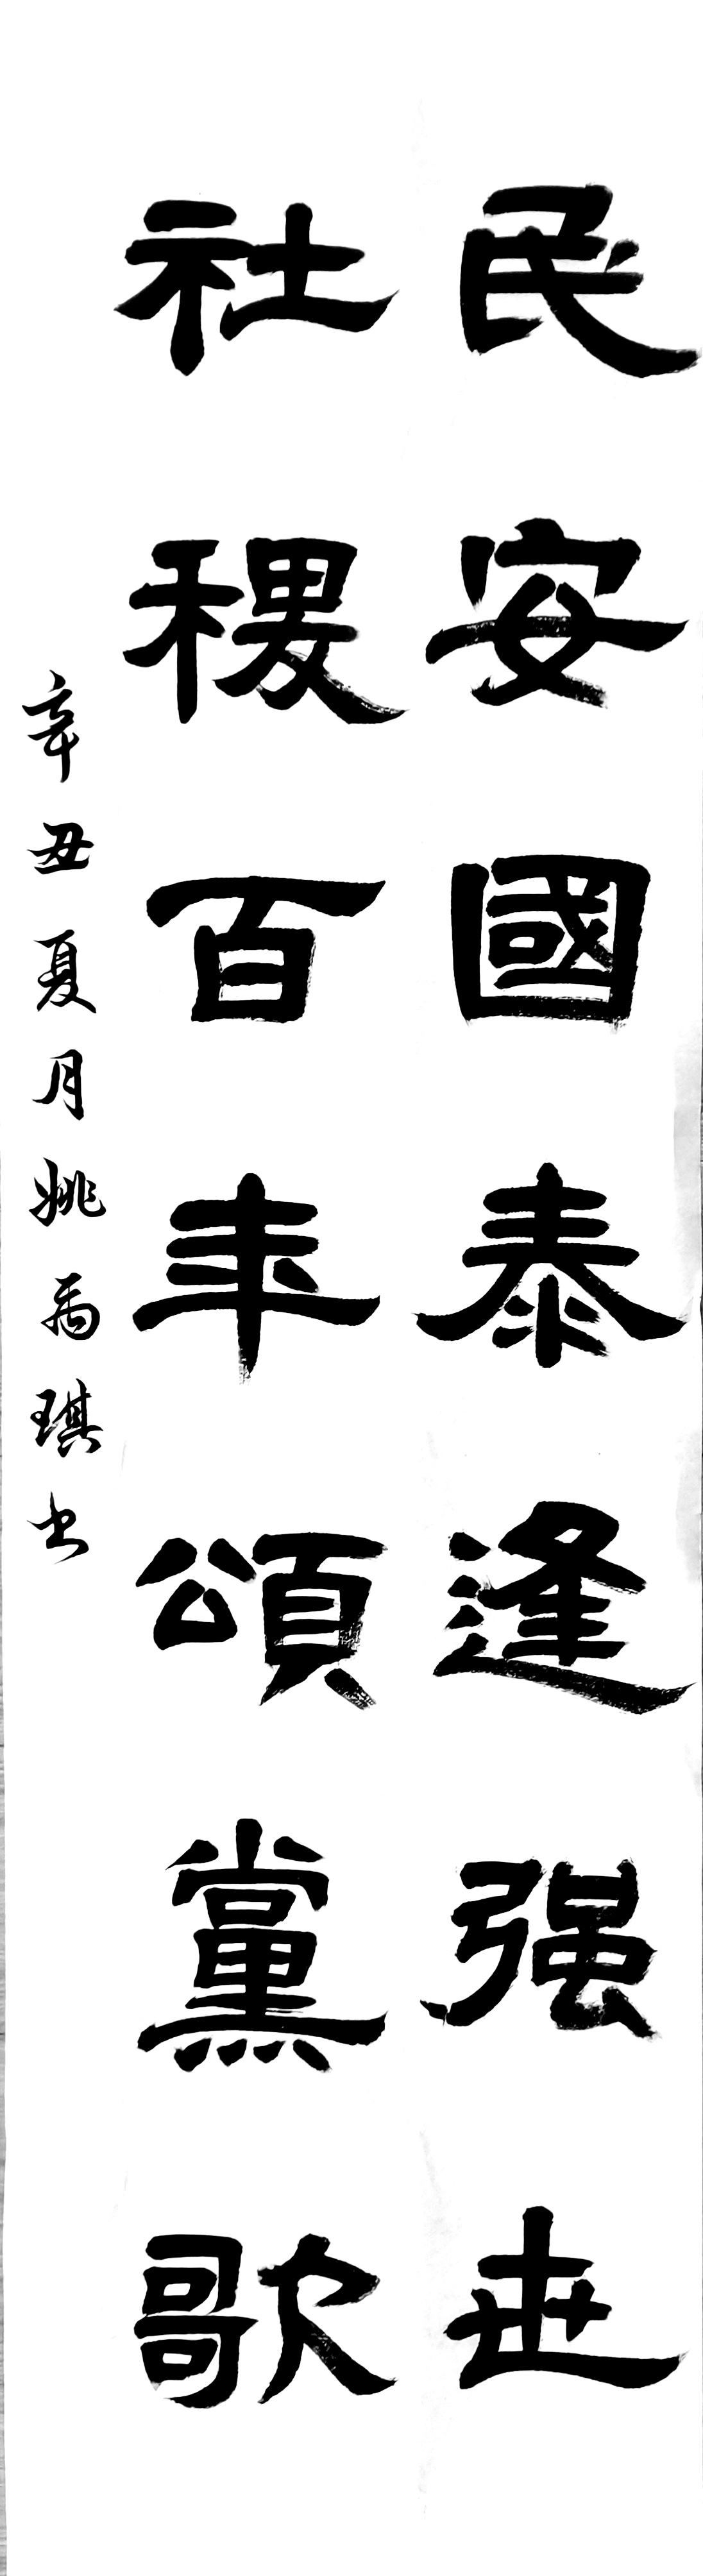 民安國泰逢强世
社稷百年頌黨歌
辛丑夏月姚禹琪书